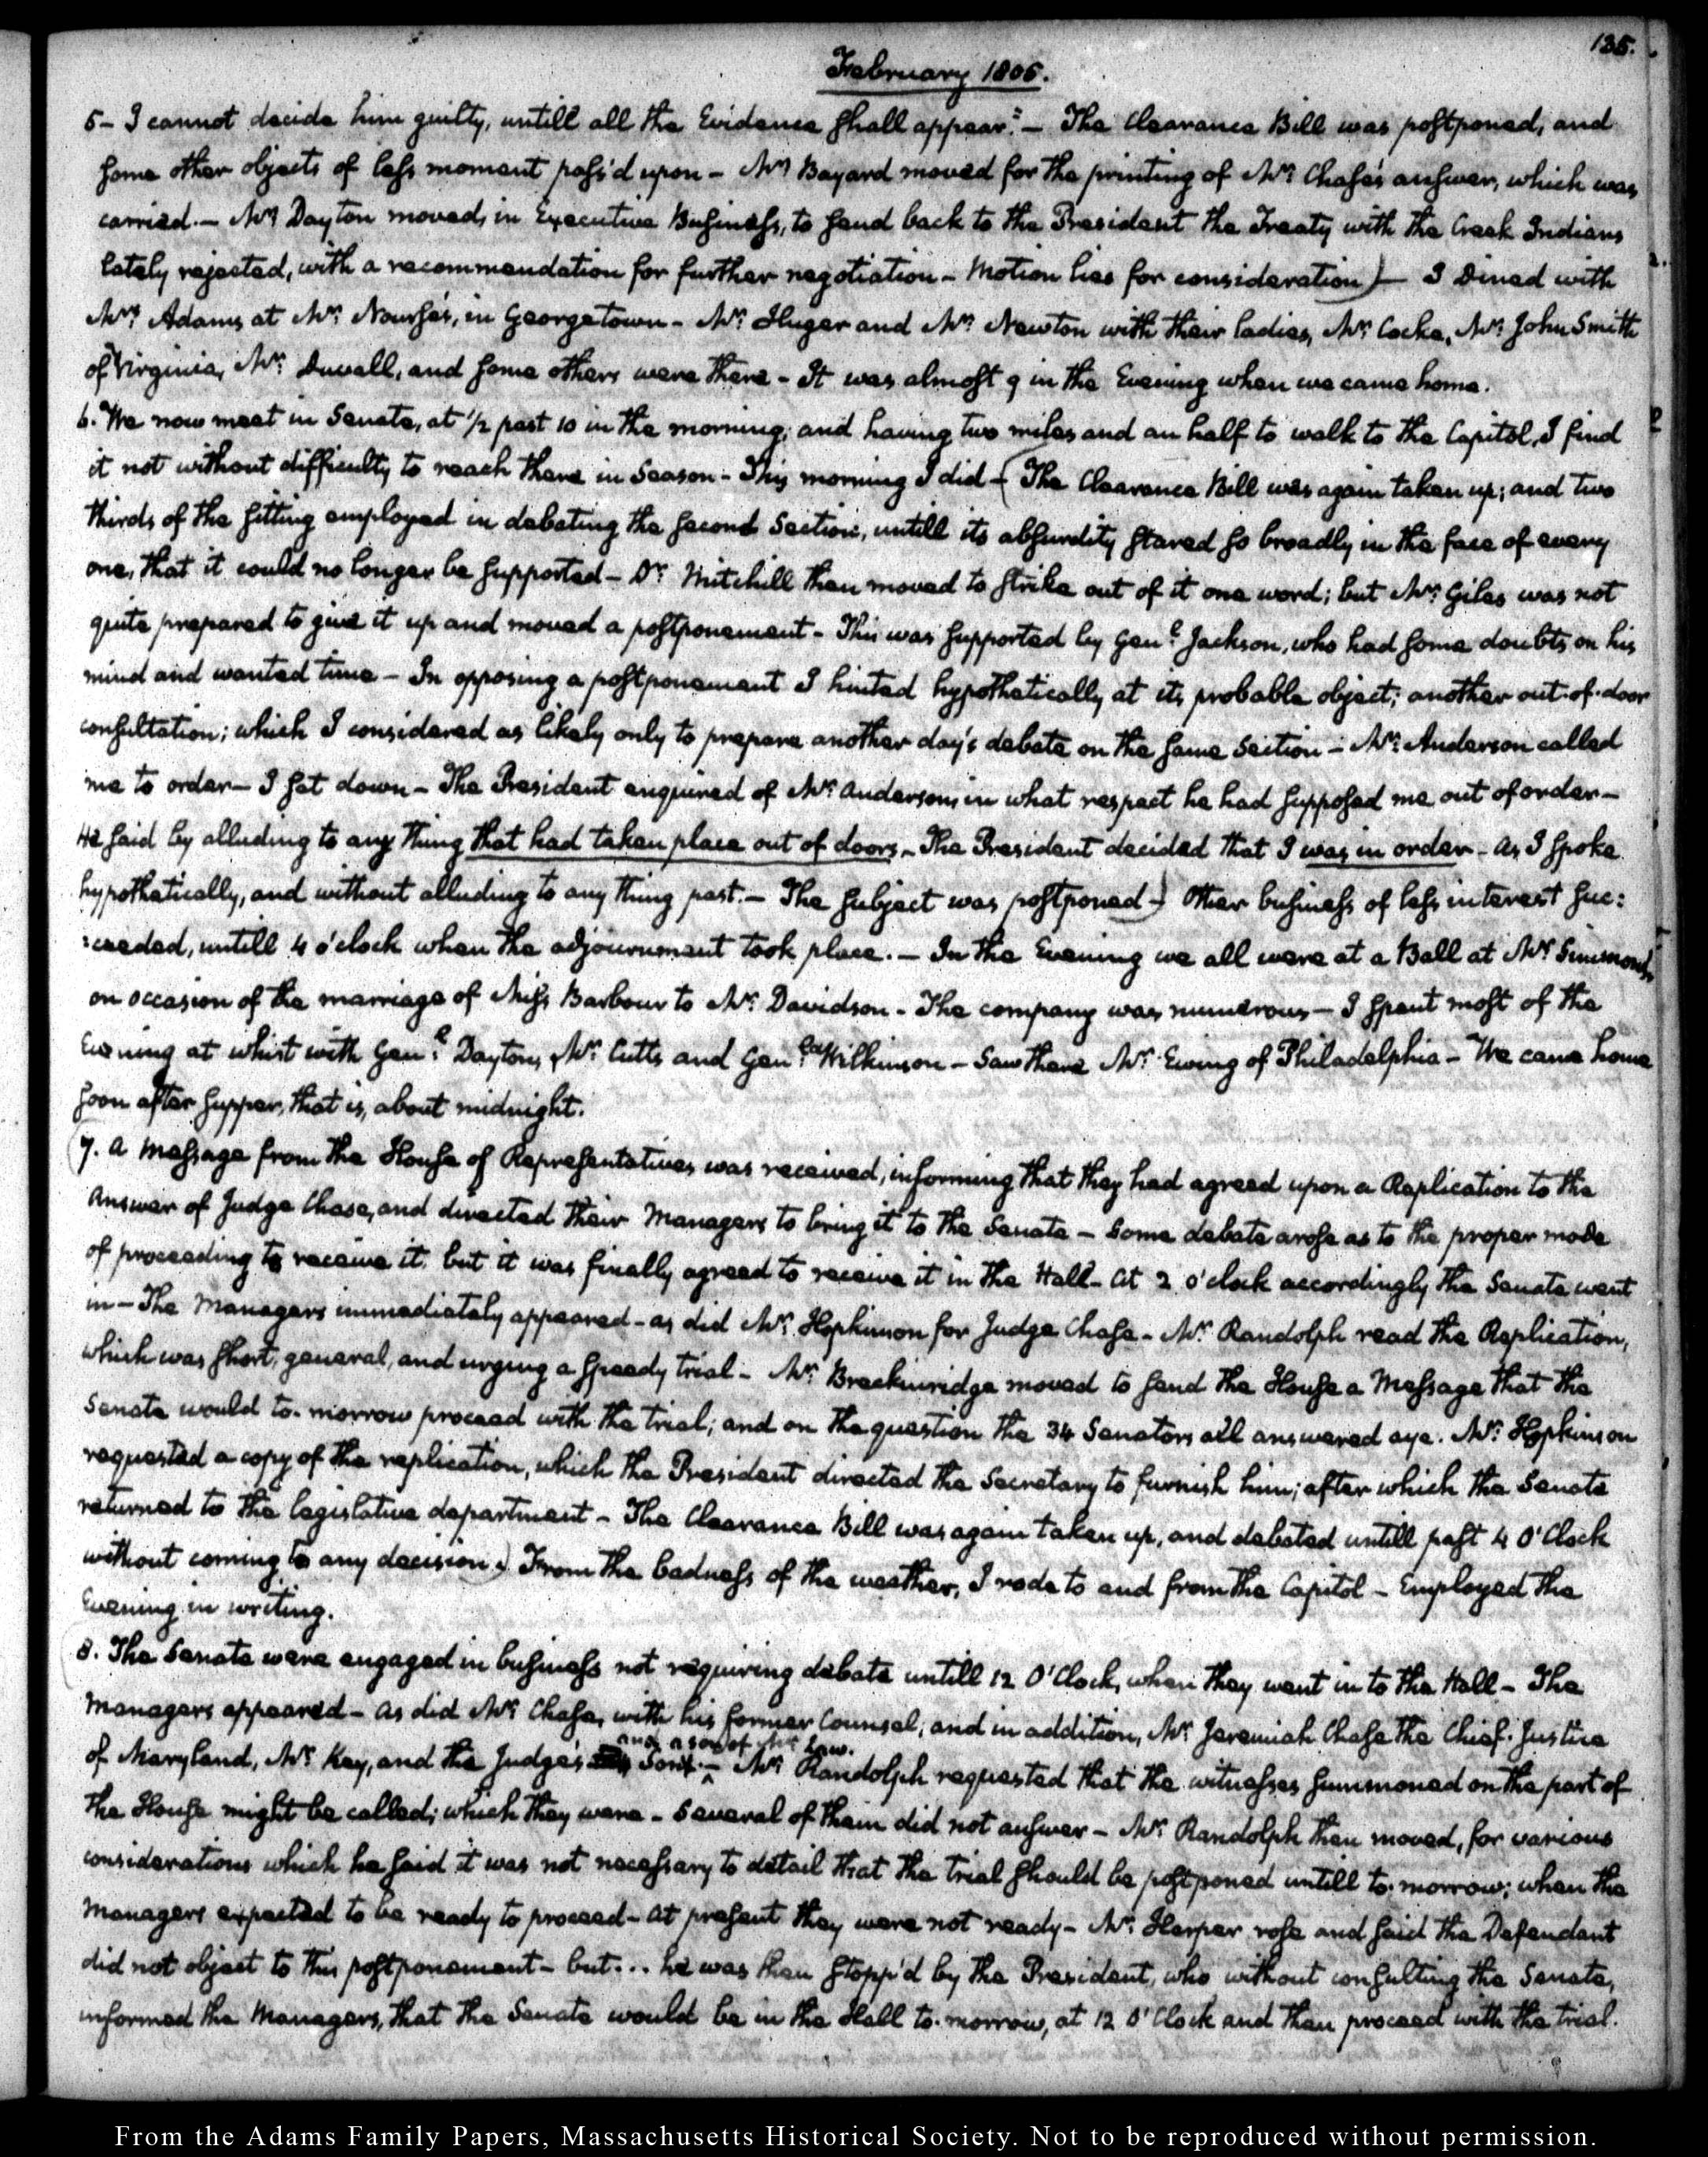 135.
February 1805.
5- I cannot decide him guilty, untill all the Evidence shall appear."- The Clearance Bill was postponed, and
some other objects of less moment pass'd upon - Mr. Bayard moved for the printing of Mr. Chase's answer, which was
carried.- Mr. Dayton moved, in Executive Business, to send back to the President the Treaty with the Creek Indians
lately rejected, with a recommendation for further negotiation - Motion lies for consideration)- I dined with
Mrs. Adams at Mr. Nourse's, in Georgetown - Mr. Huger and Mr. Newton with their ladies, Mr. Cocke, Mr. John Smith
of Virginia, Mr. Duvall, and some others were there - It was almost 9 in the Evening when we came home.
6. We now meet in Senate, at 1/2 past 10 in the morning; and having two miles and an half to walk to the Capitol, I find
it not without difficulty to reach there in Season - This morning I did - (The Clearance Bill was again taken up; and two
thirds of the sitting employed in debating the second Section, untill its absurdity stared so broadly in the face of every
one, that it could no longer be supported - Dr. Mitchill then moved to strike out of it one word; but Mr. Giles was not
quite prepared to give it up and moved a postponement - This was supported by Genl. Jackson, who had some doubts on his
mind and wanted time - In opposing a postponement I hinted hypothetically at its probable object; another out-of-door
consultation; which I considered as likely only to prepare another day's debate on the same Section - Mr. Anderson called
me to order - I sat down - The President enquired of Mr. Anderson, in what respect he had supposed me out of order -
He said by alluding to any thing that had taken place out of doors - The President decided that I was in order - As I spoke
hypothetically, and without alluding to any thing past.- The subject was postponed -) Other business of less interest suc:
:ceeded, untill 4 o'clock when the adjournment took place. - In the Evening we all were at a Ball at Mr. Simmons's,
on occasion of the marriage of Miss Barbour to Mr. Davidson - The company was numerous - I spent most of the
Evening at whist with Genl. Dayton, Mr. Cutts and Genl. Wilkinson - Saw there Mr. Ewing of Philadelphia - We came home
soon after supper, that is, about midnight.
(7. A Message from the House of Representatives was received, informing that they had agreed upon a Replication to the
Answer of Judge Chase, and directed their Managers to bring it to the Senate - Some debate arose as to the proper mode
of proceeding to receive it but it was finally agreed to receive it in the Hall - At 2 o'clock accordingly the Senate went
in - The Managers immediately appeared - as did Mr. Hopkinson for Judge Chase - Mr. Randolph read the Replication,
which was short, general, and urging a speedy trial - Mr. Breckinridge moved to send the House a Message that the
Senate would to-morrow proceed with the trial; and on the question the 34 Senators all answered aye. Mr. Hopkinson
requested a copy of the replication, which the President directed the Secretary to furnish him; after which the Senate
returned to the legislative department - The Clearance Bill was again taken up, and debated untill past 4 O'Clock
without coming to any decision.) From the badness of the weather, I rode to and from the Capitol - Employed the
Evening in writing.
(8. The Senate were engaged in business not requiring debate untill 12 O'Clock, when they went in to the Hall - The
Managers appeared - As did Mr. Chase, with his former Counsel, and in addition, Mr. Jeremiah Chase the Chief-Justice
and a son of Mr. Law.
of Maryland, Mr. Key, and the Judge's Son - Mr. Randolph requested that the witnesses summoned on the part of
the House might be called; which they were - Several of them did not answer - Mr. Randolph then moved, for various
considerations which he said it was not necessary to detail that the trial should be postponed untill to-morrow; when the
Managers expected to be ready to proceed - At present they were not ready - Mr. Harper rose and said the Defendant
did not object to this postponement - but... he was then stopp'd by the President, who without consulting the Senate,
informed the Managers, that the Senate would be in the Hall to-morrow, at 12 O'Clock and then proceed with the trial.
From the Adams Family Papers, Massachusetts Historical Society. Not to be reproduced without permission.